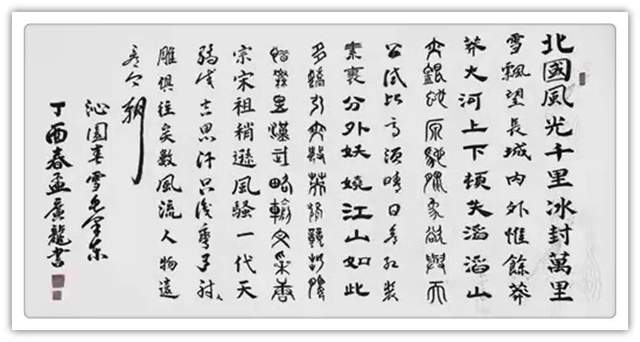 北國風光千里冰封萬里
雪飄望長城內外惟餘莽
莽大河上下頓失滔滔山
舞銀蛇原馳蠟象欲與天
公試比高須晴日看紅裝
素裹分外妖嬈江山如此
多嬌引無數英雄競折腰
惜秦皇漢武略輸文采唐
宗宋祖稍遜風騷一代天
驕成吉思汗只識彎弓射大
雕俱往矣數風流人物還
看今朝
沁園春雪毛澤東
丁酉春孟廣龍書